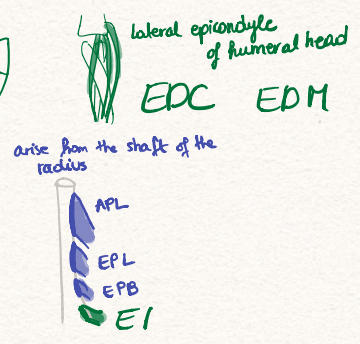 lateral epicondyle
of humeral head
EDC EDM
arise from the shaft of the
radius
APL
EPL
EPB
EI